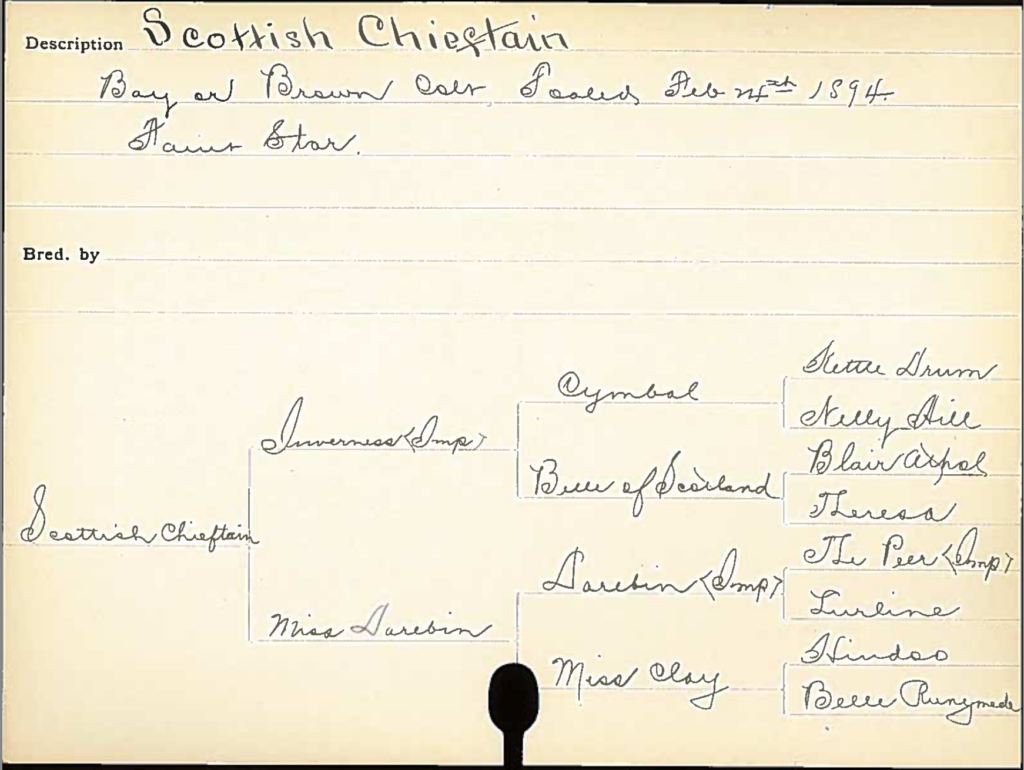 Description Scottish Chieftain
Bay or Brown Colt, Foaled Feb 24th 1894.
Faint Star.
Bred. by
Kettle Drum
Cymbal
Nelly Hill
Inverness <Imp>
Blair Athol
Belle of Scotland
Theresa
Scottish Chieftain
The Peer <Imp>
Darebin <Imp>
Lurline
Miss Darebin
Hindoo
Miss Clay
Belle Runymede